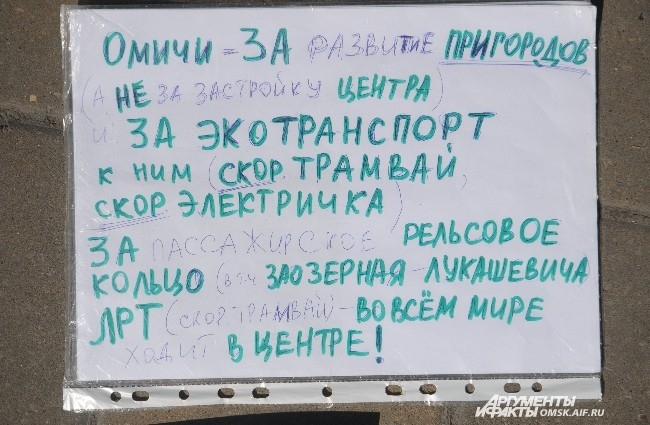 ОМИЧИ = ЗА РАЗВИТИЕ ПРИГОРОДОВ
(А НЕ ЗА ЗАСТРОЙКУ ЦЕНТРА)
И ЗА ЭКОТРАНСПОРТ
К НИМ (СКОР. ТРАМВАЙ,
СКОР ЭЛЕКТРИЧКА)
ЗА ПАССАЖИРСКОЕ РЕЛЬСОВОЕ
КОЛЬЦО (В Т.Ч. ЗАОЗЕРНАЯ - ЛУКАШЕВИЧА
ЛРТ (СКОР. ТРАМВАЙ) - ВО ВСЁМ МИРЕ
ХОДИТ В ЦЕНТРЕ!
АРГУМЕНТЫ
И ФАКТЫ OMSK.AIF.RU